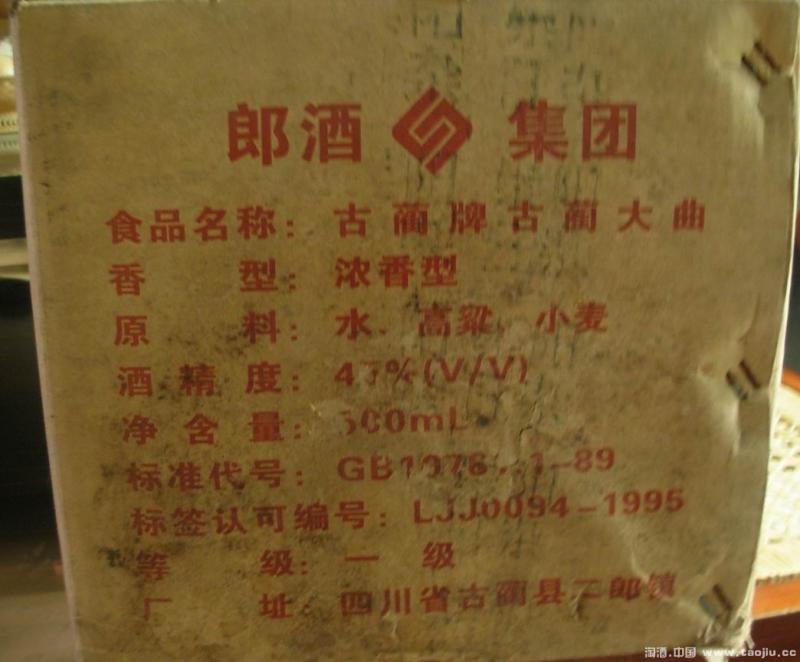 郎酒 集团
食品名称：古蔺牌古蔺大曲
香型：浓香型
原料：水、高粱、小麦
酒精度：
净含量：500mL
标准代号：
标签认可编号：LJJ0094-1995
等级：一级
厂址：四川省古蔺县二郎镇
淘酒.中国 www.taojiu.cc